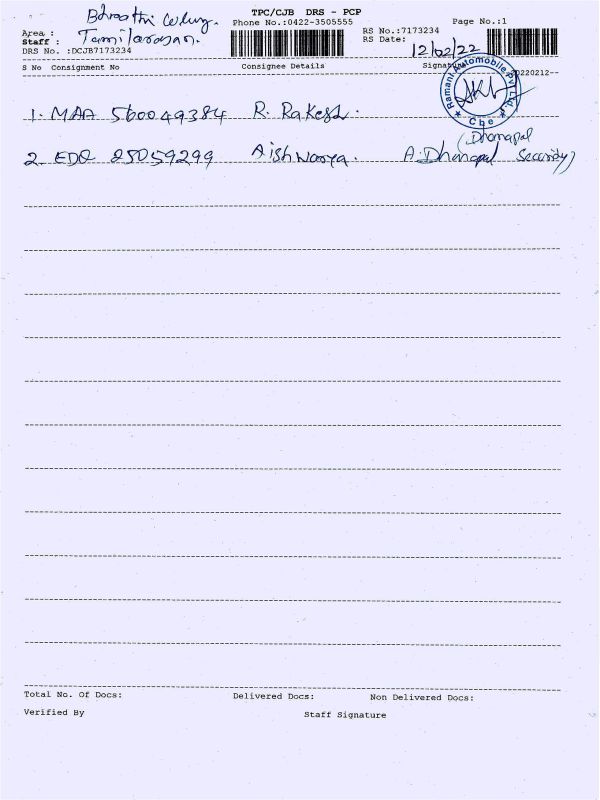 TPC/CJB DRS - PCP
Phone No.:0422-3505555
Page No.:1
Area :
Staff : Tamilarasan.
DRS No. :DCJB7173234
RS No.:7173234
RS Date: 12/02/22
S No Consignment No Consignee Details Signature
20220212--
Ramani Automobile Pvt Ltd., * Cbe *
1. MAA 560049384 R. Rakesh.
(Dhanapal
2. EDQ 25059299 Aishwarya. A.Dhanapal Security)
Total No. Of Docs: Delivered Docs: Non Delivered Docs:
Verified By Staff Signature